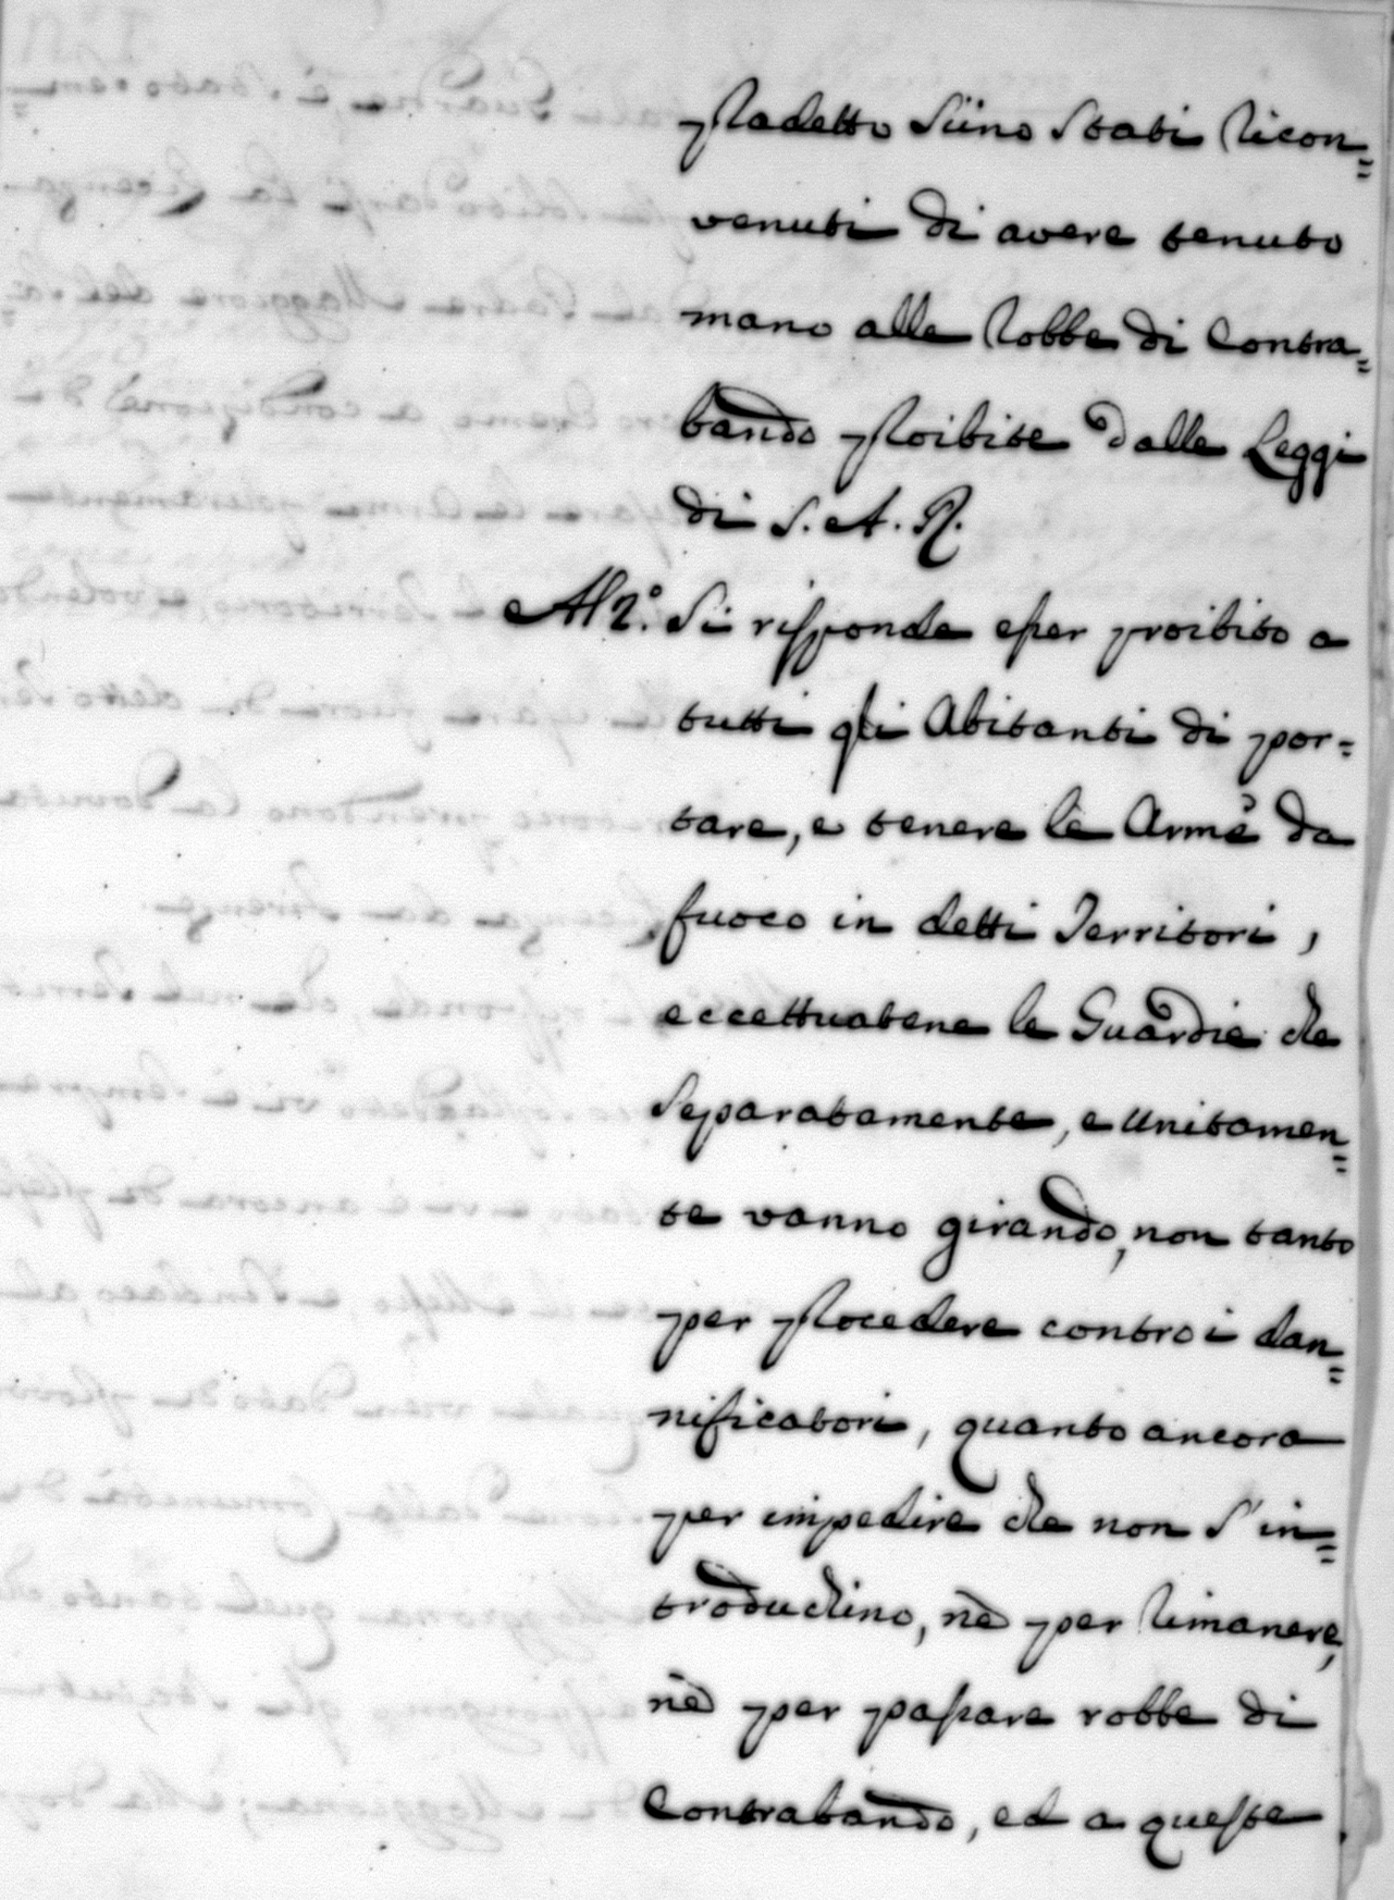 Pradetto Siino Stati Ricon=
venuti di avere tenuto
mano alle Robbe di Contra=
bando Proibite dalle Leggi
di S. A. R.
Al 2.° Si risponde esser proibito a
tutti gli Abitanti di por=
tare, e tenere le Arme da
fuoco in detti Territori,
eccettuatene le Guardie che
Separatamente, e unitamen=
te vanno girando, non tanto
per Procedere contro i dan=
nificatori, quanto ancora
per impedire che non S'in=
troduchino, nè per Rimanere,
nè per passare robbe di
Contrabando, ed a queste